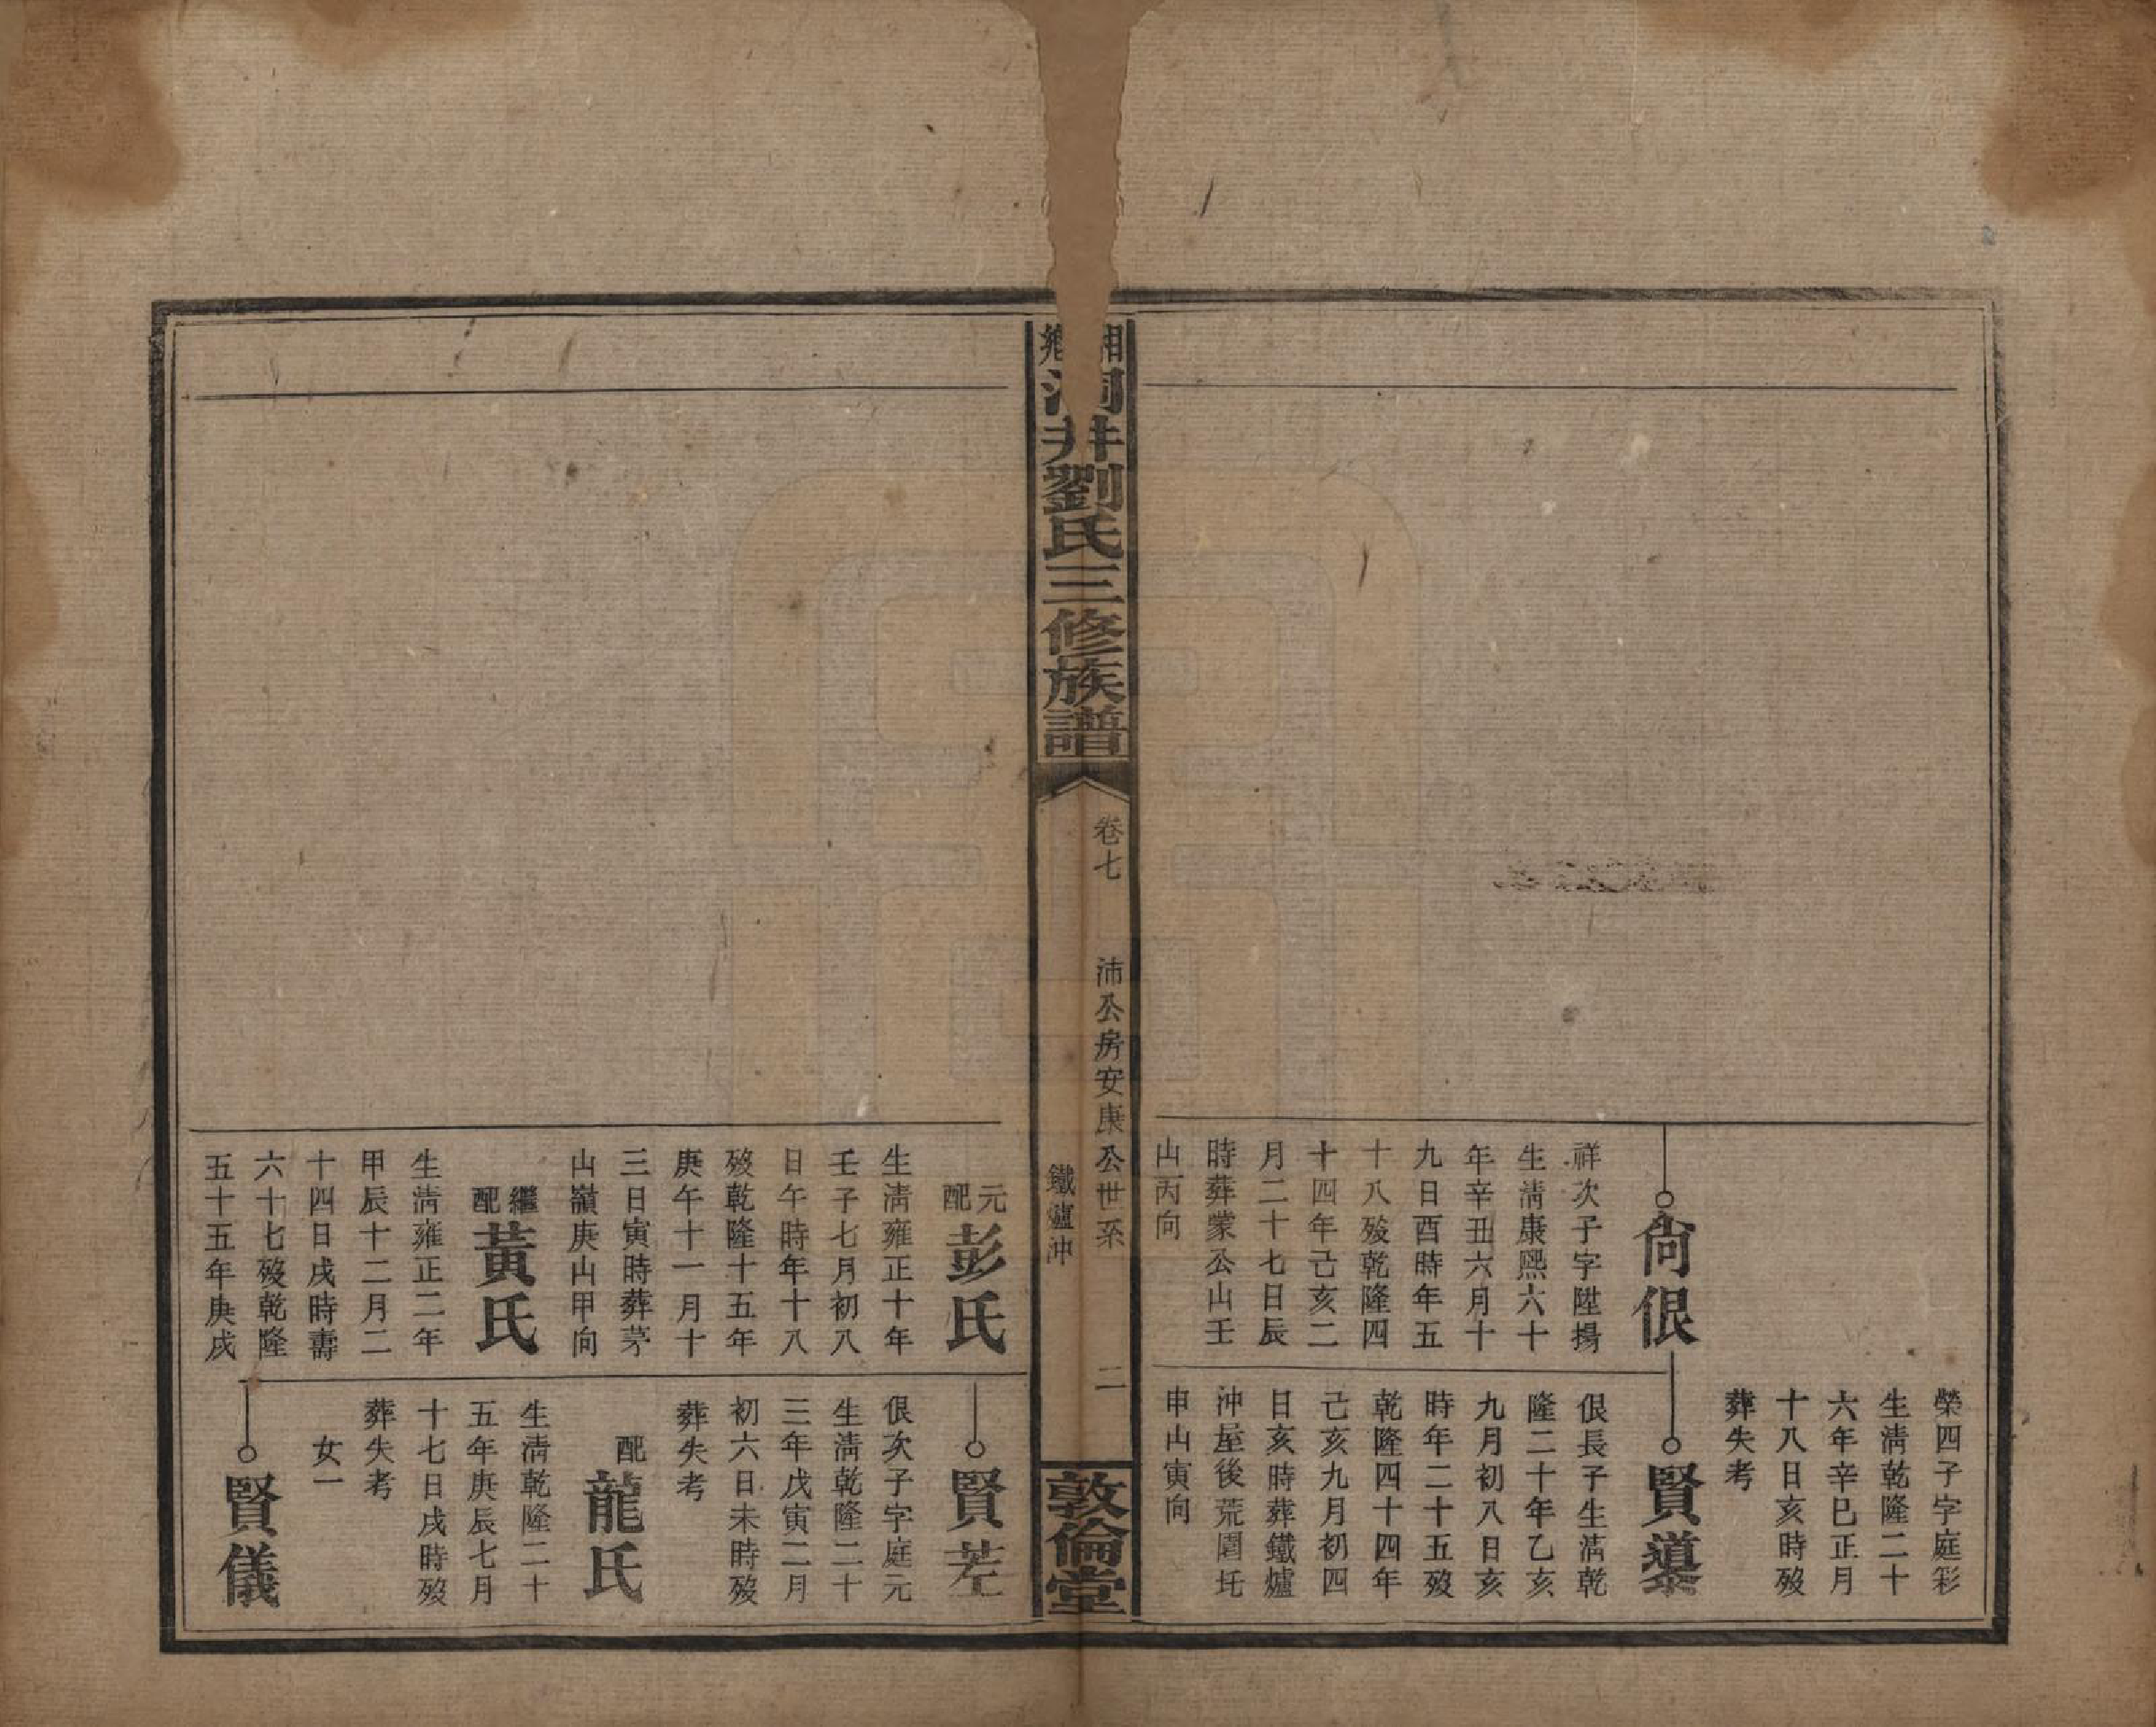 尙佷
祥次子字陞揚
生淸康熙六十
年辛丑六月十
九日酉時年五
十八歿乾隆四
十四年己亥二
月二十七日辰
時葬蒙公山壬
山丙向
榮四子字庭彩
生淸乾隆二十
六年辛巳正月
十八日亥時歿
葬失考
賢
佷長子生淸乾
隆二十年乙亥
九月初八日亥
時年二十五歿
乾隆四十四年
己亥九月初四
日亥時葬鐵爐
沖屋後荒園圫
申山寅向
湘鄉洞井劉氏三修族譜
卷七
沛公房安康公世系
鐵爐沖
二
敦倫堂
元配彭氏
生淸雍正十年
壬子七月初八
日午時年十八
歿乾隆十五年
庚午十一月十
三日寅時葬茅
山嶺庚山甲向
繼配黃氏
生淸雍正二年
甲辰十二月二
十四日戌時壽
六十七歿乾隆
五十五年庚戌
賢茫
佷次子字庭元
生淸乾隆二十
三年戊寅二月
初六日未時歿
葬失考
配龍氏
生淸乾隆二十
五年庚辰七月
十七日戌時歿
葬失考
女一
賢儀